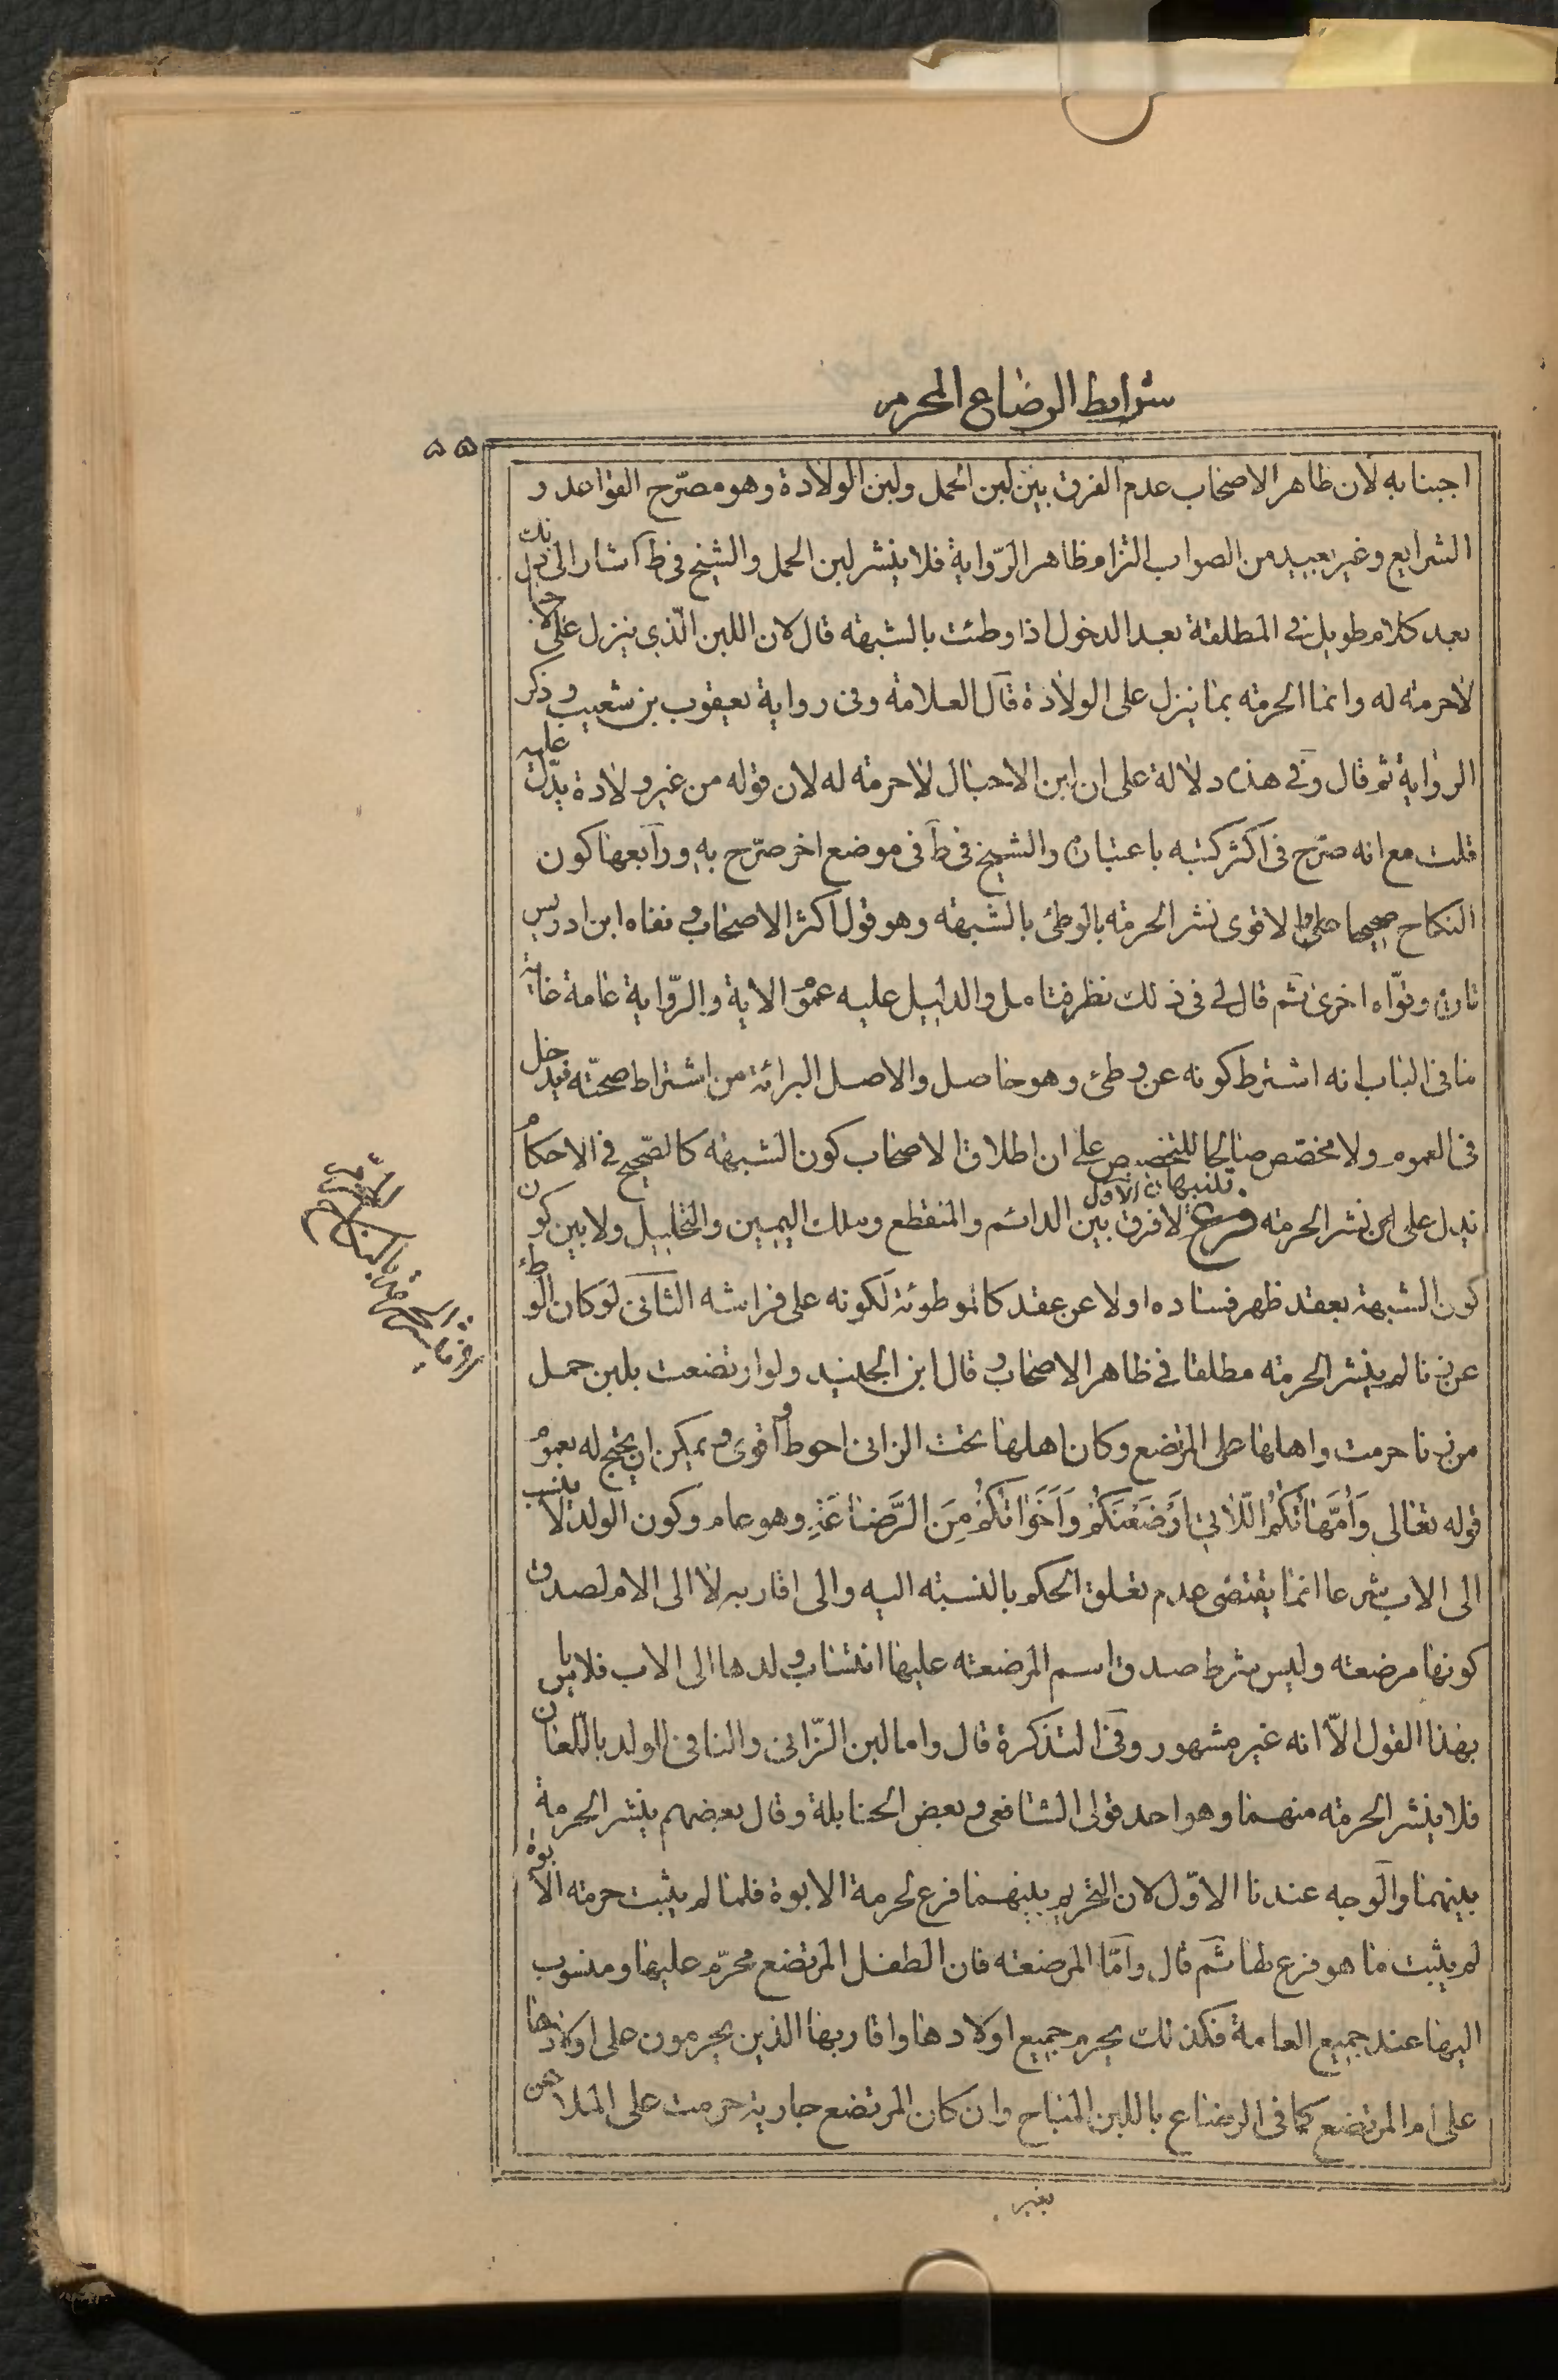 شرايط الرضاع المحرم
٥٥
اجبنا به لان ظاهر الاصحاب عدم الفرق بين لبن الحمل ولبن الولادة وهو مصرّح القواعد و
الشرايع وغير بعيد من الصواب التزام ظاهر الرّواية فلا ينشر لبن الحمل والشيخ في ط اشار الى ذلك
بعد كلام طويل في المطلقة بعد الدخول اذا وطئت بالشبهة قال لان اللبن الّذي ينزل على
لاحرمة له وانما الحرمة بما ينزل على الولادة قال العلامة وفى رواية يعقوب بن شعيب وذكر
الرواية ثم قال وفى هذه دلالة على ان لبن الاحبال لاحرمة له لان قوله من غير ولادة يدّل عليه
قلت مع انه صرّح فى اكثر كتبه باعتباره والشيخ فى ط فى موضع اخر صرّح به ورابعها كون
النكاح صحيحا على الاقوى نشر الحرمة بالوطئ بالشبهة وهو قول اكثر الاصحاب ونفاه ابن ادريس
تارة وقوّاه اخرى ثم قال لى فى ذلك نظر فتامل والدليل عليه عموم الاية والرّواية عامة غاية
ما فى الباب انه اشترط كونه عن وطئ وهو حاصل والاصل البرائة من اشتراط صحّته فيدخل
فى العموم ولا مخصّص صالحا للتخصيص على ان اطلاق الاصحاب كون الشبهة كالصّحيح فى الاحكام
يدل على ان نشر الحرمة فرع تنبيهان الاول لا فرق بين الدائم والمنقطع وملك اليمين والتحليل ولا بين كون
كون الشبهة بعقد ظهر فساده اولا عن عقد كالموطوئة لكونه على فراشه الثانى لو كان الوطئ
عن زنا لم ينشر الحرمة مطلقا فى ظاهر الاصحاب وقال ابن الجنيد ولو ارتضعت بلبن حمل
من زنا حرمت واهلها على المرتضع وكان اهلها تحت الزانى احوط واقوى ويمكن ان يحتج له بعموم
قوله تعالى وَاُمَّهاتُكُمُ اللّاتي اَرْضَعْنَكُمْ وَاَخَواتُكُمْ مِنَ الرَّضاعَةِ وهو عام وكون الولد لا ينسب
الى الاب شرعا انما يقتضى عدم تعلق الحكم بالنسبة اليه والى اقاربه لا الى الام لصدق
كونها مرضعة وليس شرط صدق اسم المرضعة عليها انتساب ولدها الى الاب فلا باس
بهذا القول الّا انه غير مشهور وفى التذكرة قال واما لبن الزّانى والنافى الولد باللّعان
فلا ينشر الحرمة منهما وهو احد قولى الشافعى وبعض الحنابلة وقال بعضهم ينشر الحرمة
بينهما والوجه عندنا الاوّل لان التحريم بينهما فرع لحرمة الابوة فلما لم يثبت حرمة الابوة
لم يثبت ما هو فرع لها ثم قال وامّا المرضعة فان الطفل المرتضع محرّم عليها ومنسوب
اليها عند جميع العامة فكذلك يحرم جميع اولادها واقاربها الذين يحرمون على اولادها
على ام المرتضع كما فى الرضاع باللبن المباح وان كان المرتضع جارية حرمت على الملاعن
بغير